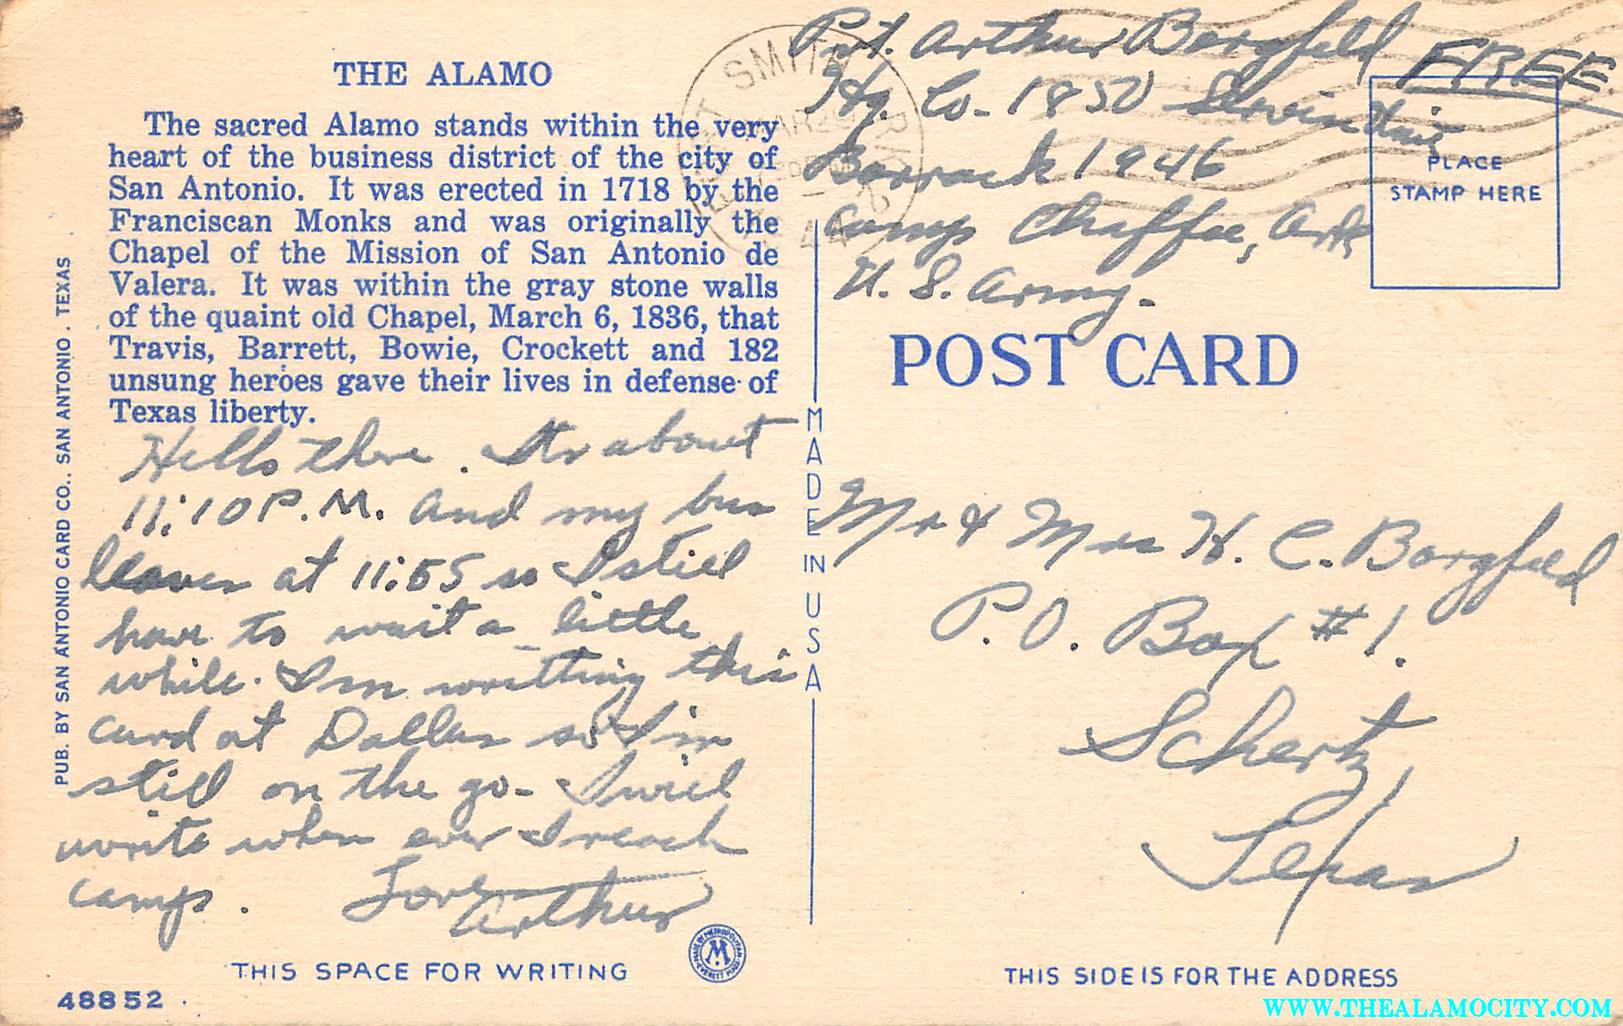 THE ALAMO
The sacred Alamo stands within the very
heart of the business district of the city of
San Antonio. It was erected in 1718 by the
Franciscan Monks and was originally the
Chapel of the Mission of San Antonio de
Valera. It was within the gray stone walls
of the quaint old Chapel, March 6, 1836, that
Travis, Barrett, Bowie, Crockett and 182
unsung heroes gave their lives in defense of
Texas liberty.
Hello there. Its about
11:10 P.M. and my bus
leaves at 11:55 so I still
have to wait a little
while. I'm writting this
card at Dallas so I'm
still on the go - I will
write when ever I reach
camp. Love
Arthur
THIS SPACE FOR WRITING
48852
PUB. BY SAN ANTONIO CARD CO., SAN ANTONIO, TEXAS
MADE IN USA
MADE BY METROPOLITAN
M
EVERETT MASS
SMITH
44
Pvt. Arthur Borgfeld
Hq. Co. 1850 Service Unit
Barrack 1946
Camp Chaffee, Ark
U. S. Army.
FREE
PLACE
STAMP HERE
POST CARD
Mr & Mrs H. C. Borgfeld
P. O. Box #1.
Schertz,
Texas
THIS SIDE IS FOR THE ADDRESS
WWW.THEALAMOCITY.COM